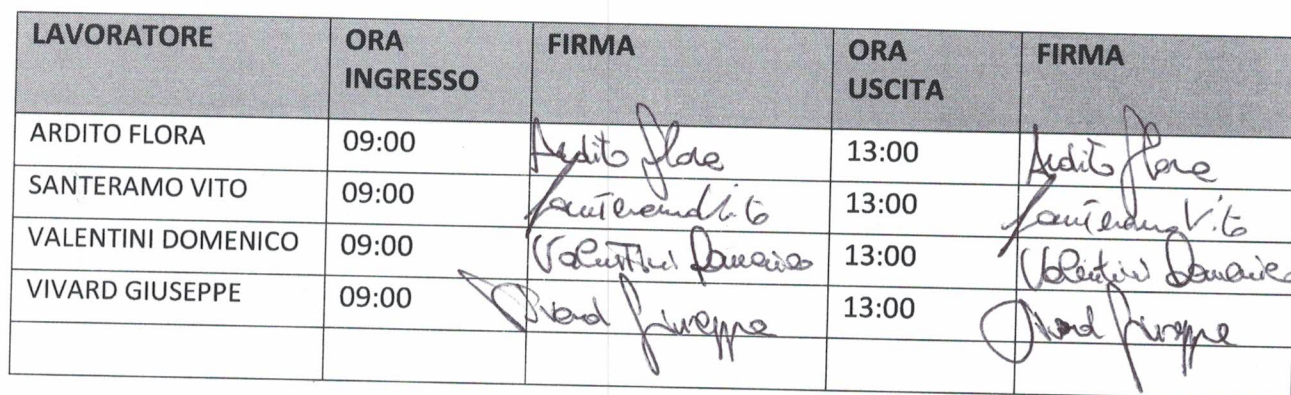 LAVORATORE ORA INGRESSO FIRMA ORA USCITA FIRMA
ARDITO FLORA 09:00 Ardito Flora 13:00 Ardito Flora
SANTERAMO VITO 09:00 Santeramo Vito 13:00 Santeramo Vito
VALENTINI DOMENICO 09:00 Valentini Domenico 13:00 Valentini Domenico
VIVARD GIUSEPPE 09:00 Vivard Giuseppe 13:00 Vivard Giuseppe